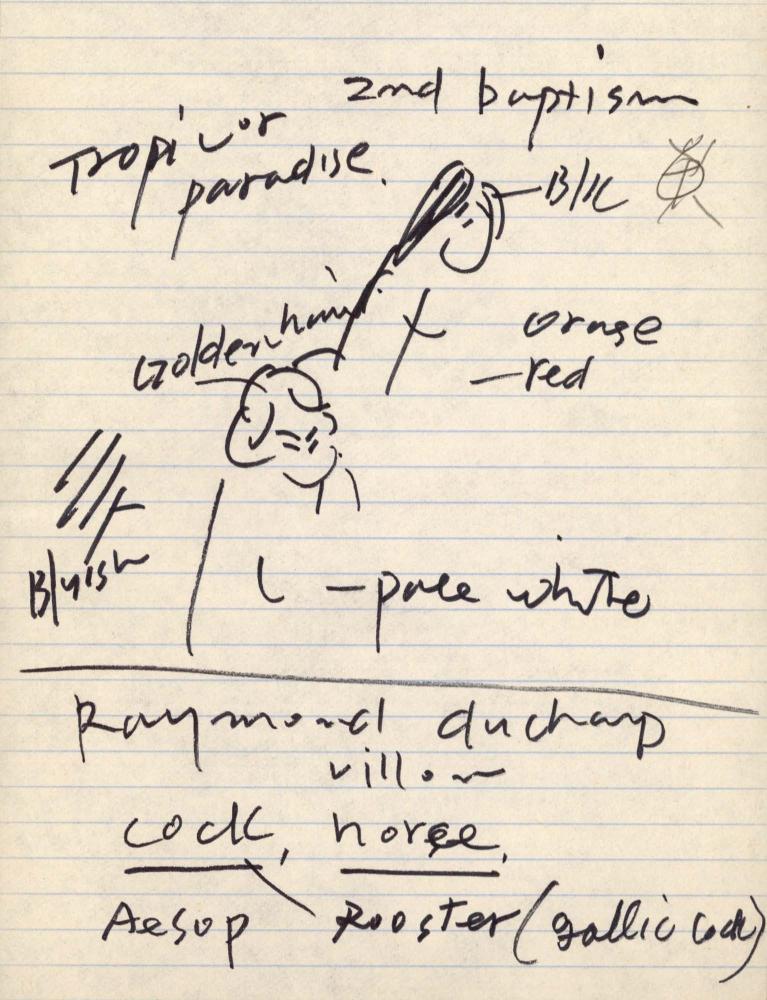 2nd baptism
Tropic or
paradise.
B/K
Golden hair
orange
—red
Bluish
— pale white
Raymond duchamp
villon
cock, horse,
Aesop Rooster (gallic cock)